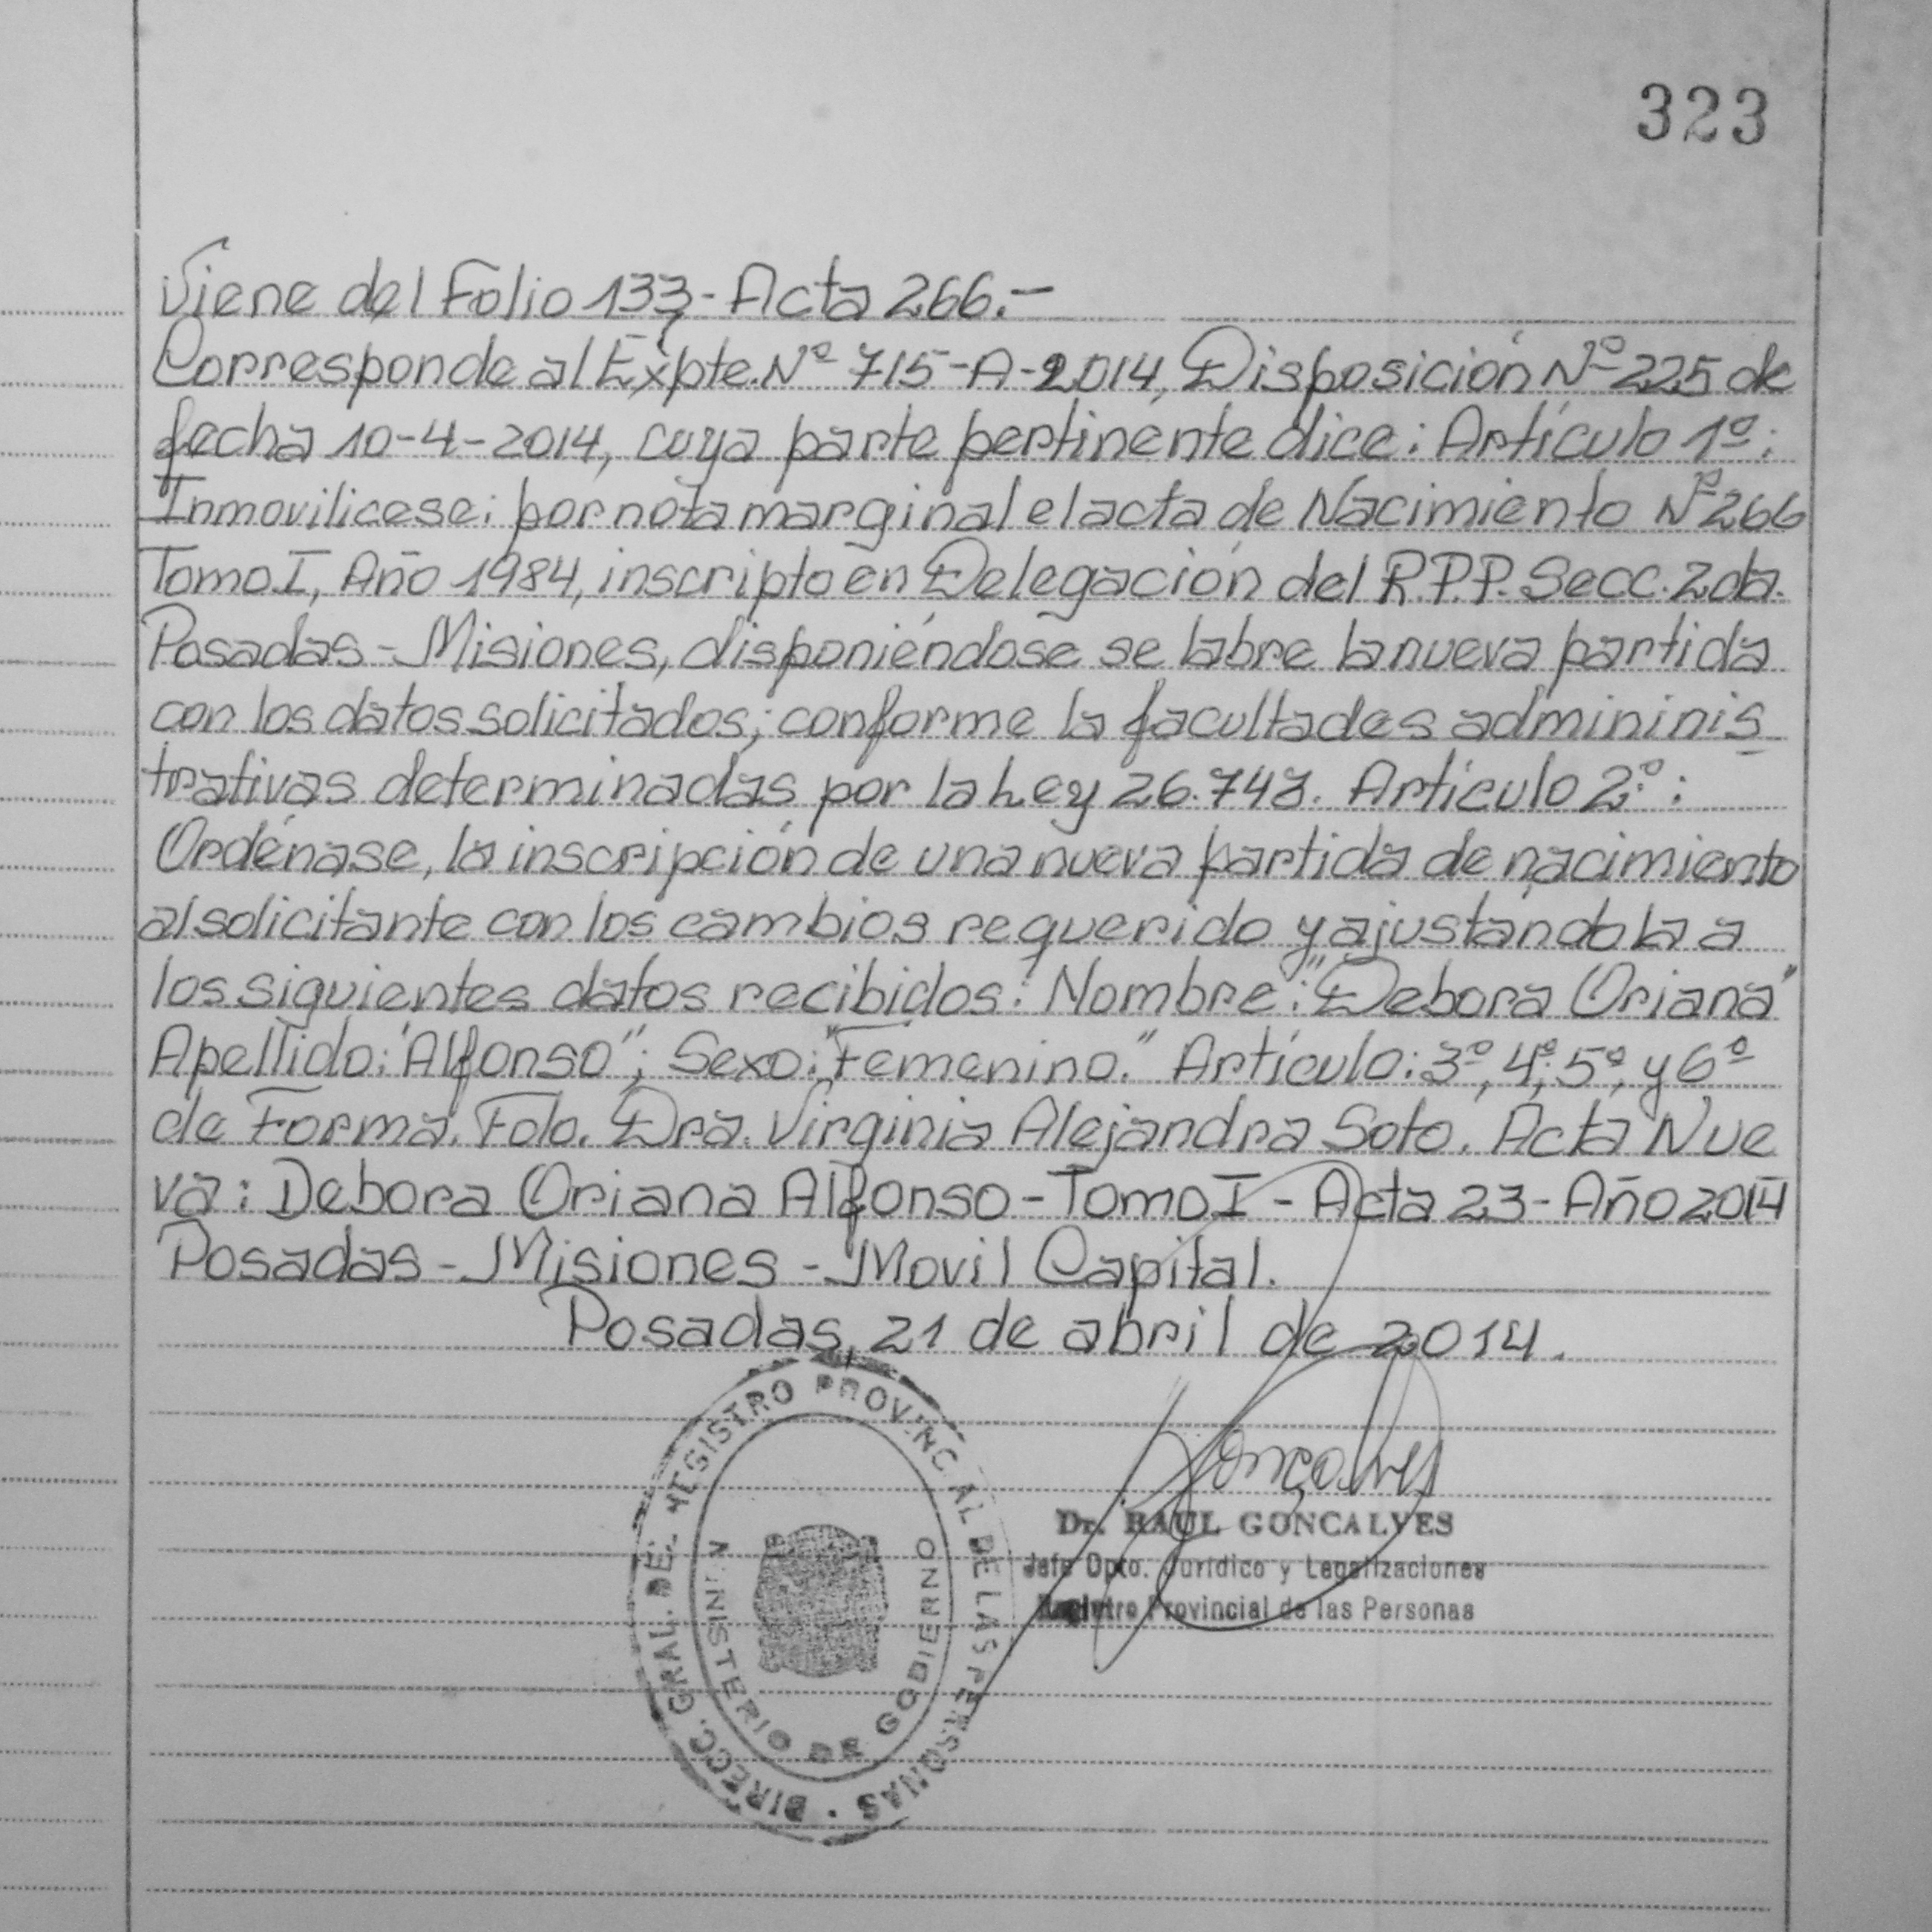 323
Viene del Folio 133-Acta 266.-
Corresponde al Expte. Nº 715-A-2014, Disposición Nº 225 de
fecha 10-4-2014, cuya parte pertinente dice: Artículo 1º:
Inmovilicese; por nota marginal el acta de Nacimiento Nº 266
Tomo I, Año 1984, inscripto en Delegación del R.P.P. Secc. 2da.
Posadas-Misiones, disponiéndose se labre la nueva partida
con los datos solicitados; conforme la facultades admininis
trativas determinadas por la Ley 26.743. Artículo 2º:
Ordénase, la inscripción de una nueva partida de nacimiento
al solicitante con los cambios requerido y ajustandola a
los siguientes datos recibidos: Nombre: "Debora Oriana"
Apellido: "Alfonso"; Sexo: "Femenino." Artículo: 3º, 4º, 5º, y 6º
de Forma. Fdo. Dra. Virginia Alejandra Soto. Acta Nue
va: Debora Oriana Alfonso-Tomo I-Acta 23-Año 2014
Posadas-Misiones-Movil Capital.
Posadas, 21 de abril de 2014.
Goncalves
Dr. RAUL GONCALVES
Jefe Dpto. Jurídico y Legalizaciones
Registro Provincial de las Personas
DIRECC. GRAL. DEL REGISTRO PROVINCIAL DE LAS PERSONAS
MINISTERIO DE GOBIERNO